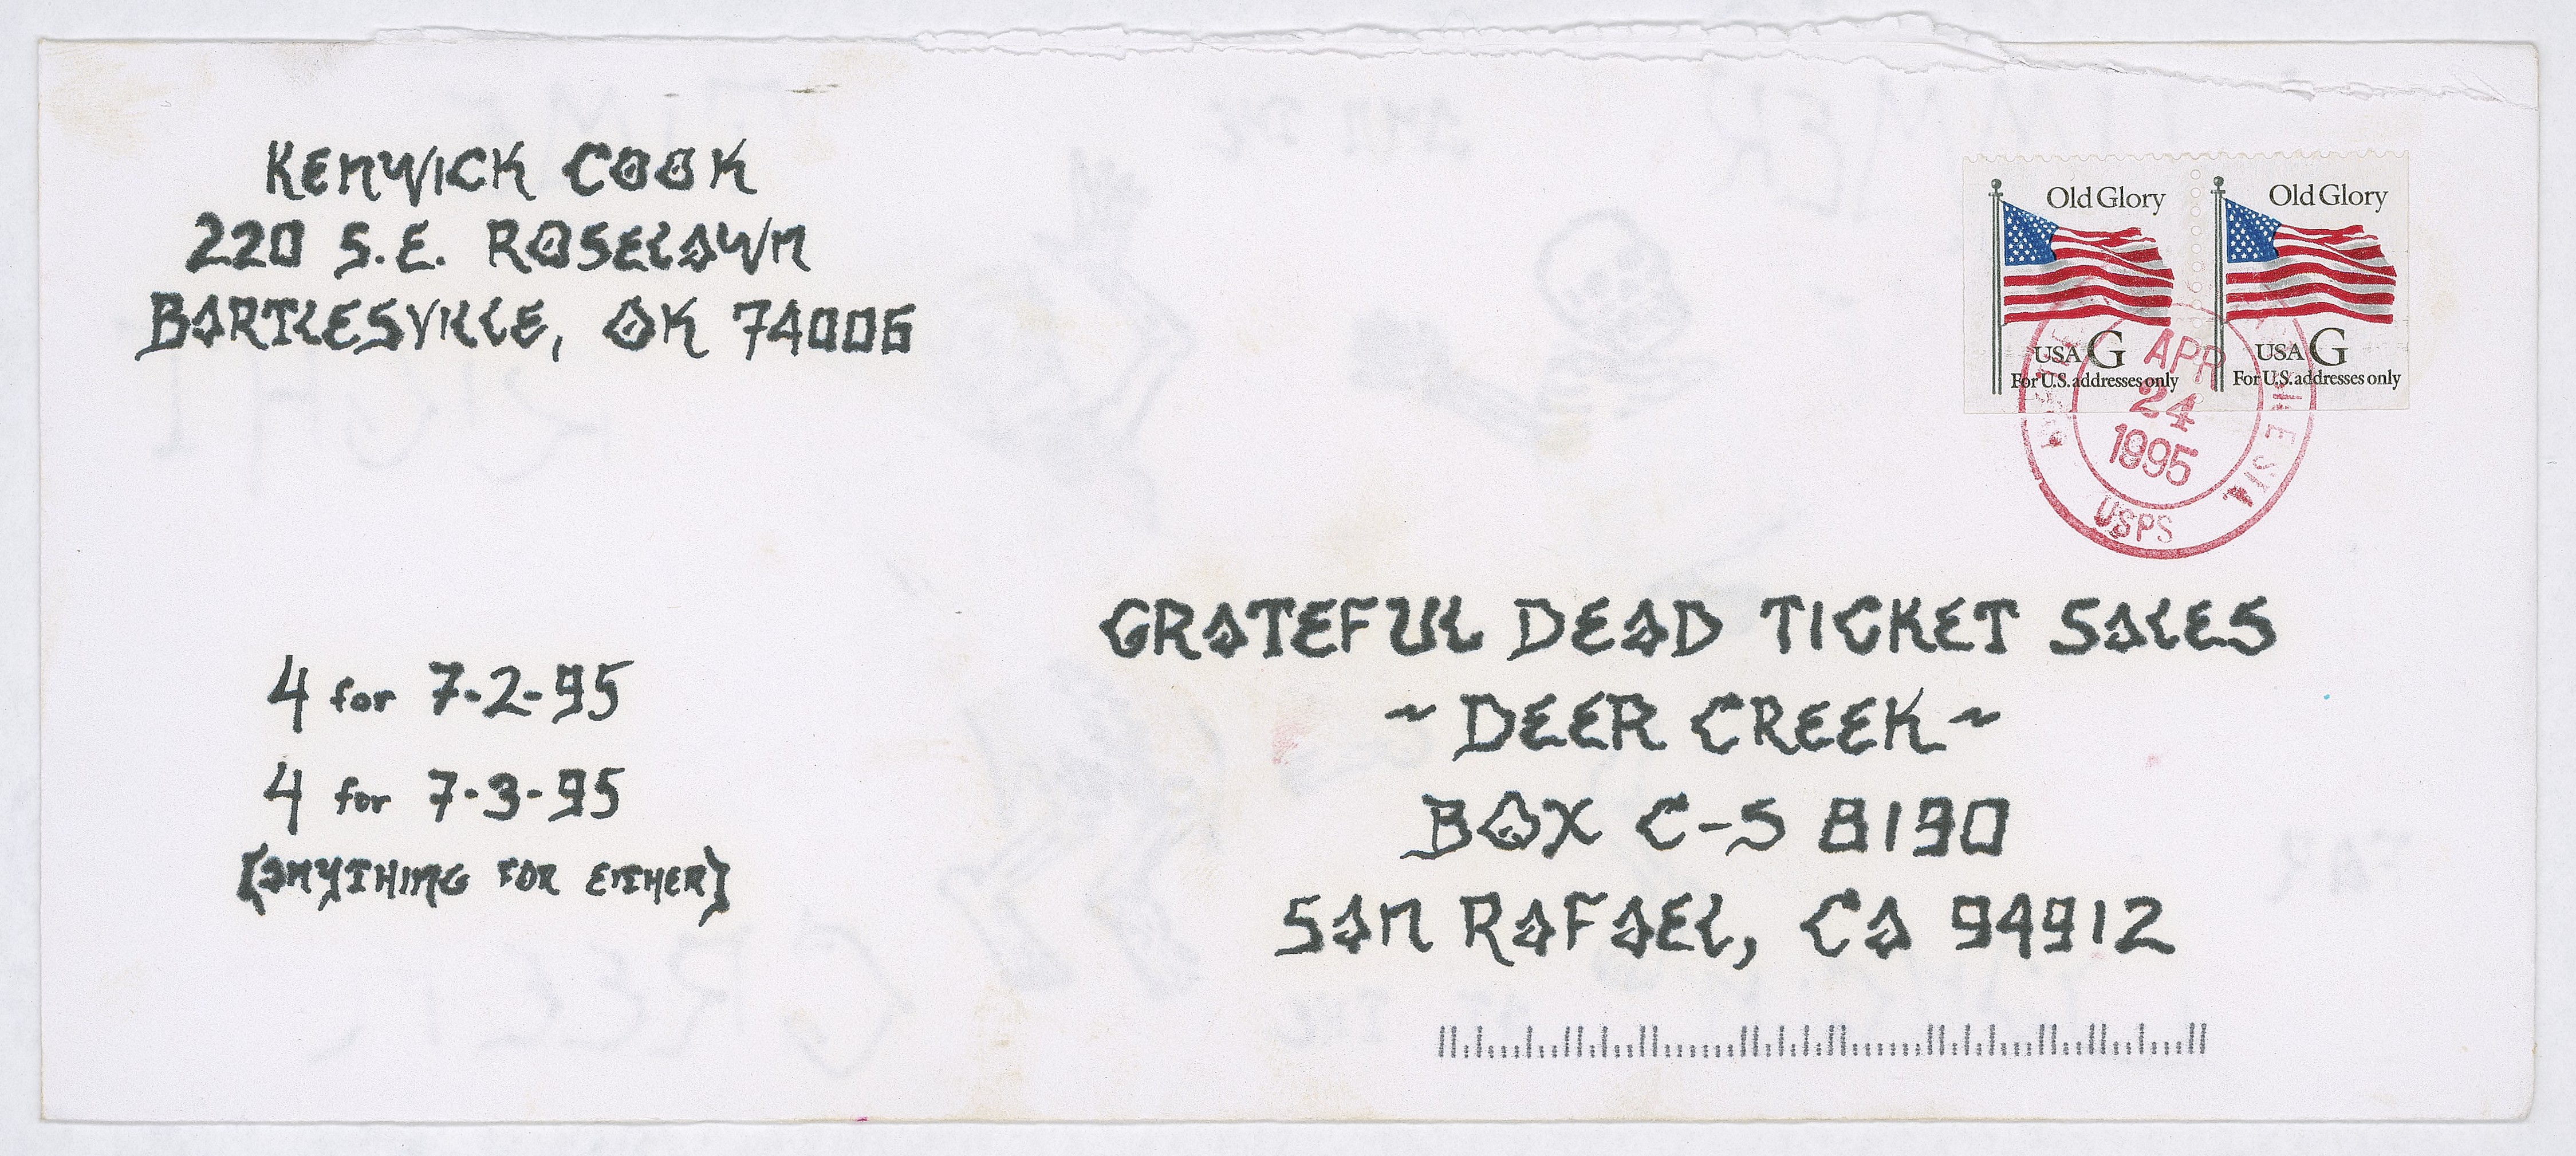 KENWICK COOK
220 S.E. ROSELAWN
BARTLESVILLE, OK 74006
Old Glory
USA G
For U.S. addresses only
Old Glory
USA G
For U.S. addresses only
APR
24
1995
USPS
GRATEFUL DEAD TICKET SALES
~ DEER CREEK ~
BOX C-S 8190
SAN RAFAEL, CA 94912
4 for 7-2-95
4 for 7-3-95
[ANYTHING FOR EITHER]